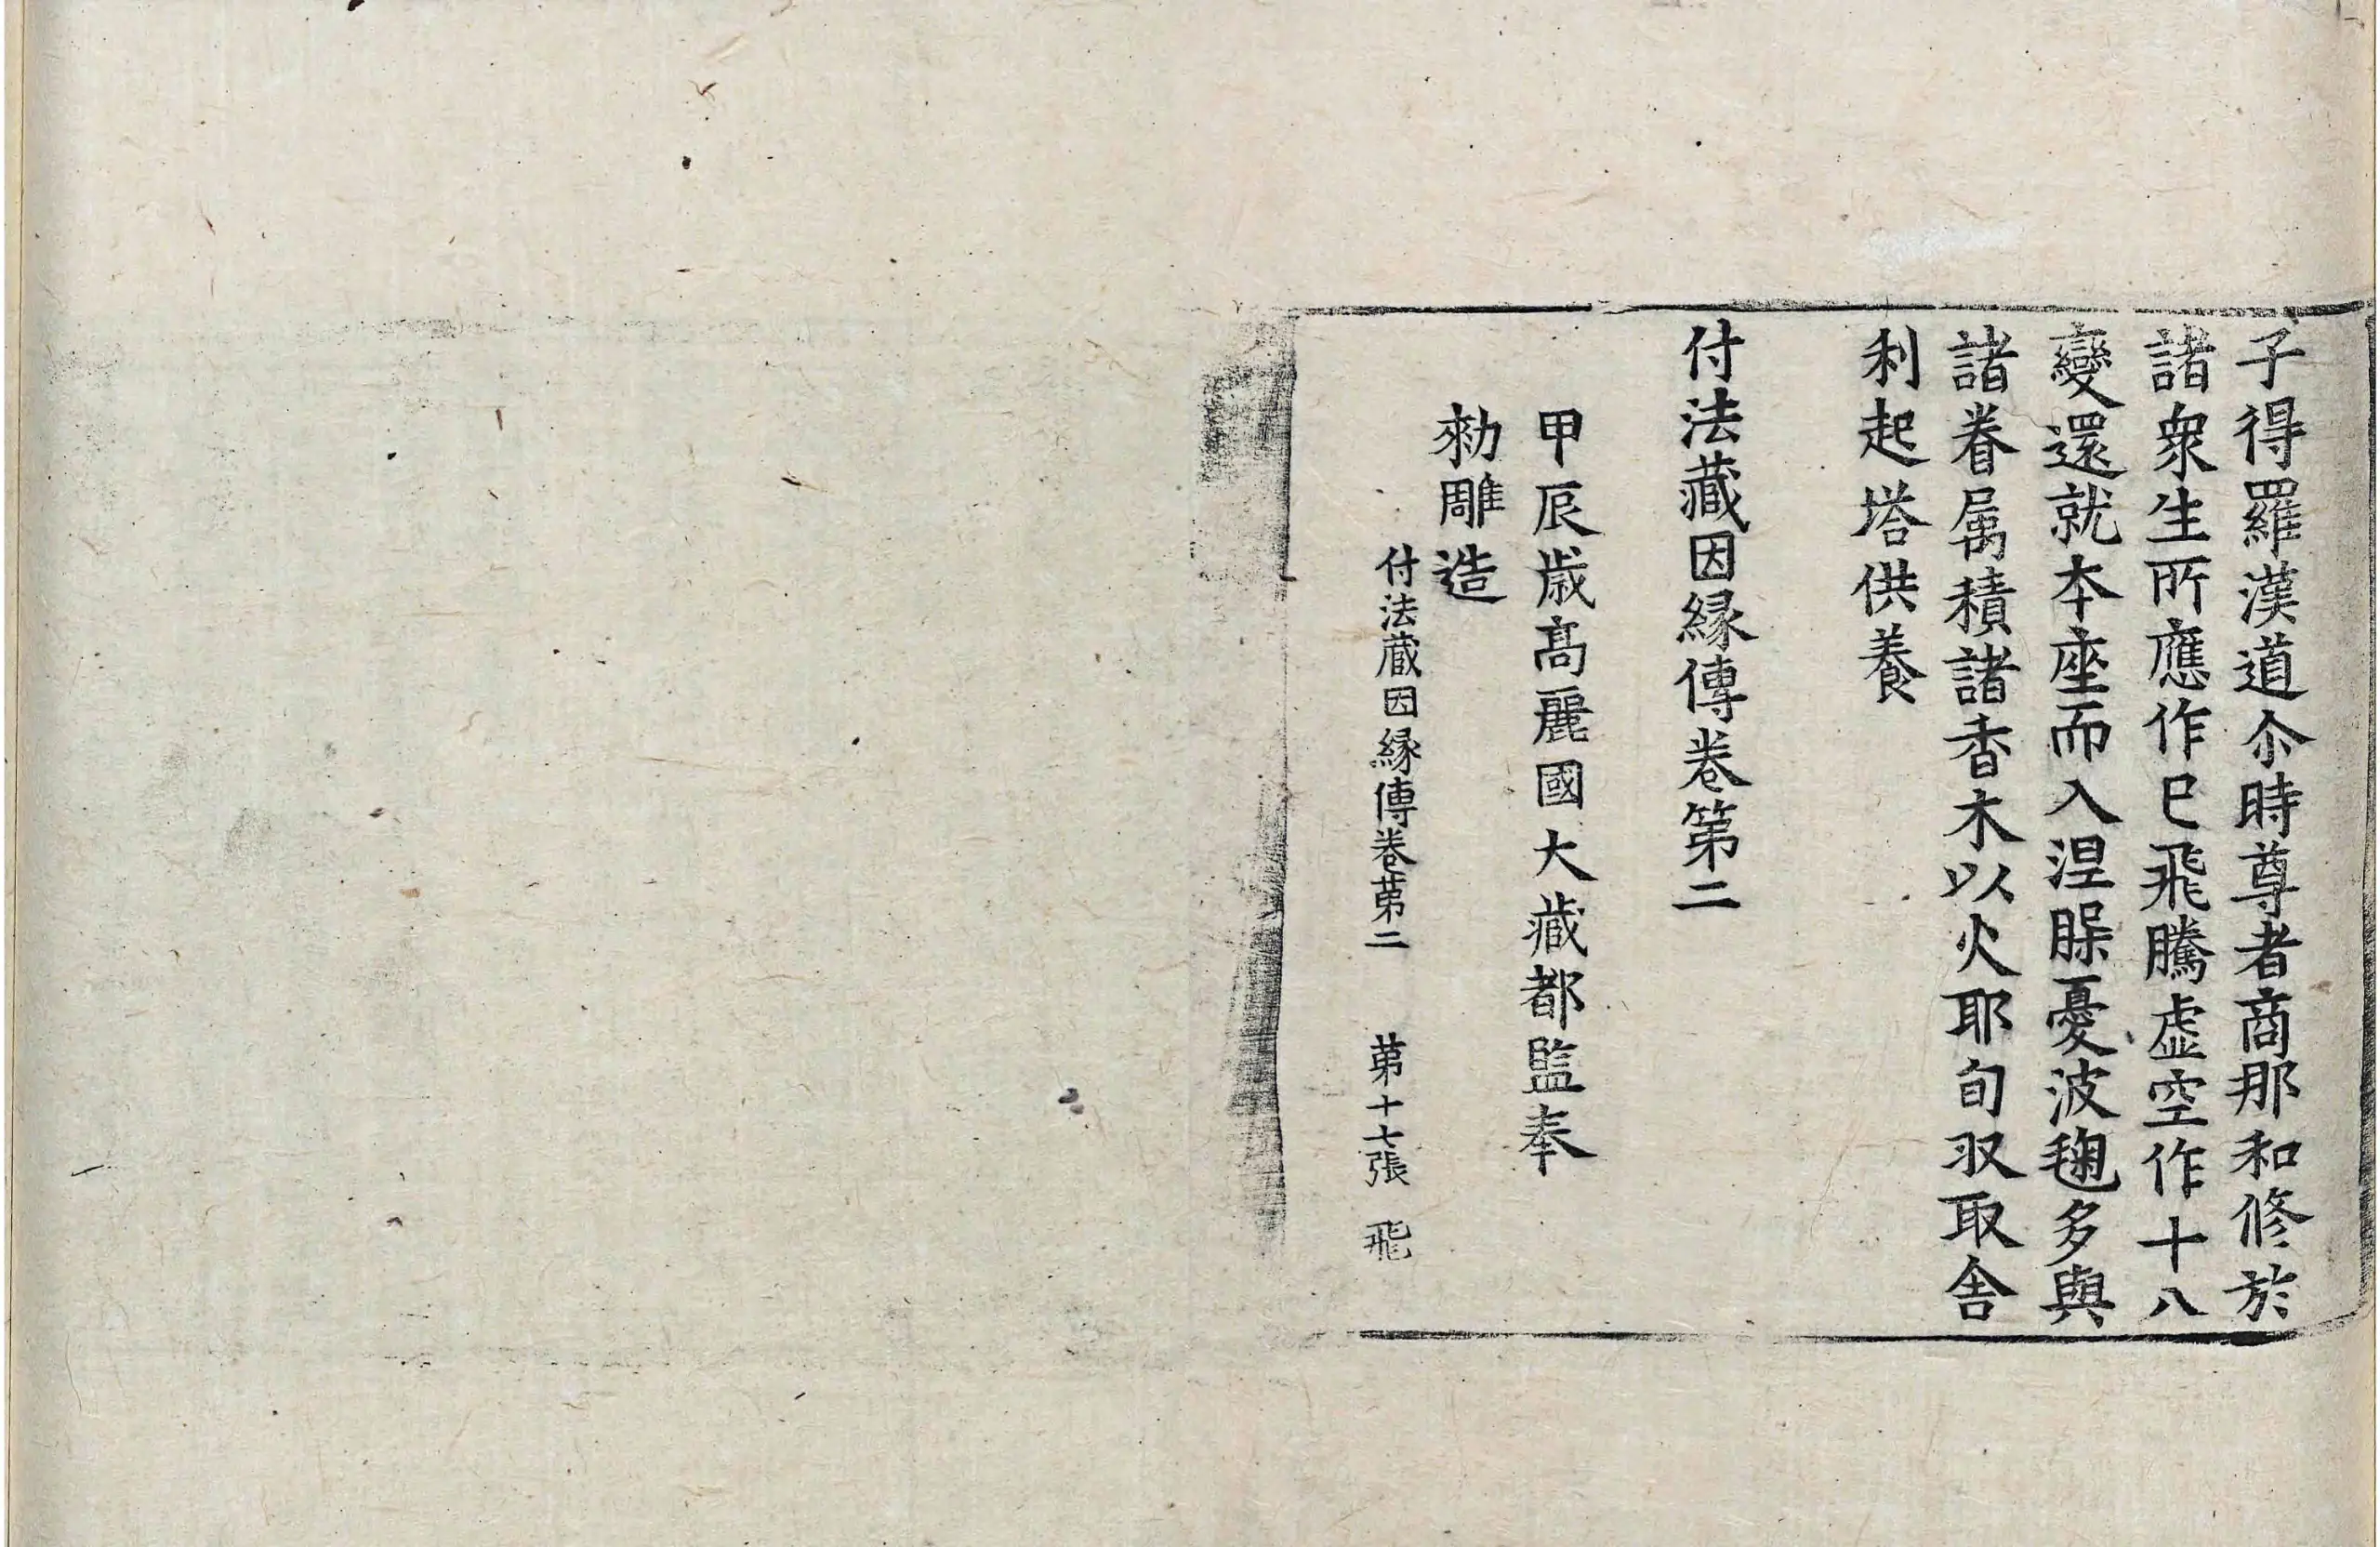 子得羅漢道尒時尊者商那和修於
諸衆生所應作已飛騰虛空作十八
變還就本座而入涅槃憂波毱多與
諸眷属積諸香木以火耶旬収取舍
利起塔供養
付法藏因緣傳卷第二
甲辰歲高麗國大藏都監奉
勑雕造
付法藏因緣傳卷苐二 苐十七張 飛